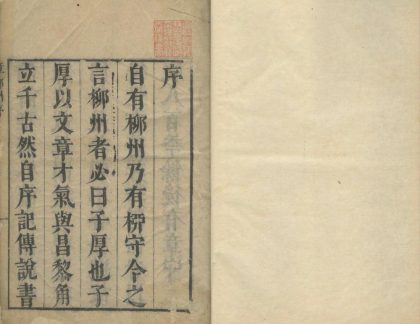 序
自有柳州乃有柳守今之
言柳州者必曰子厚也子
厚以文章才氣與昌黎角
立千古然自序記傳說書